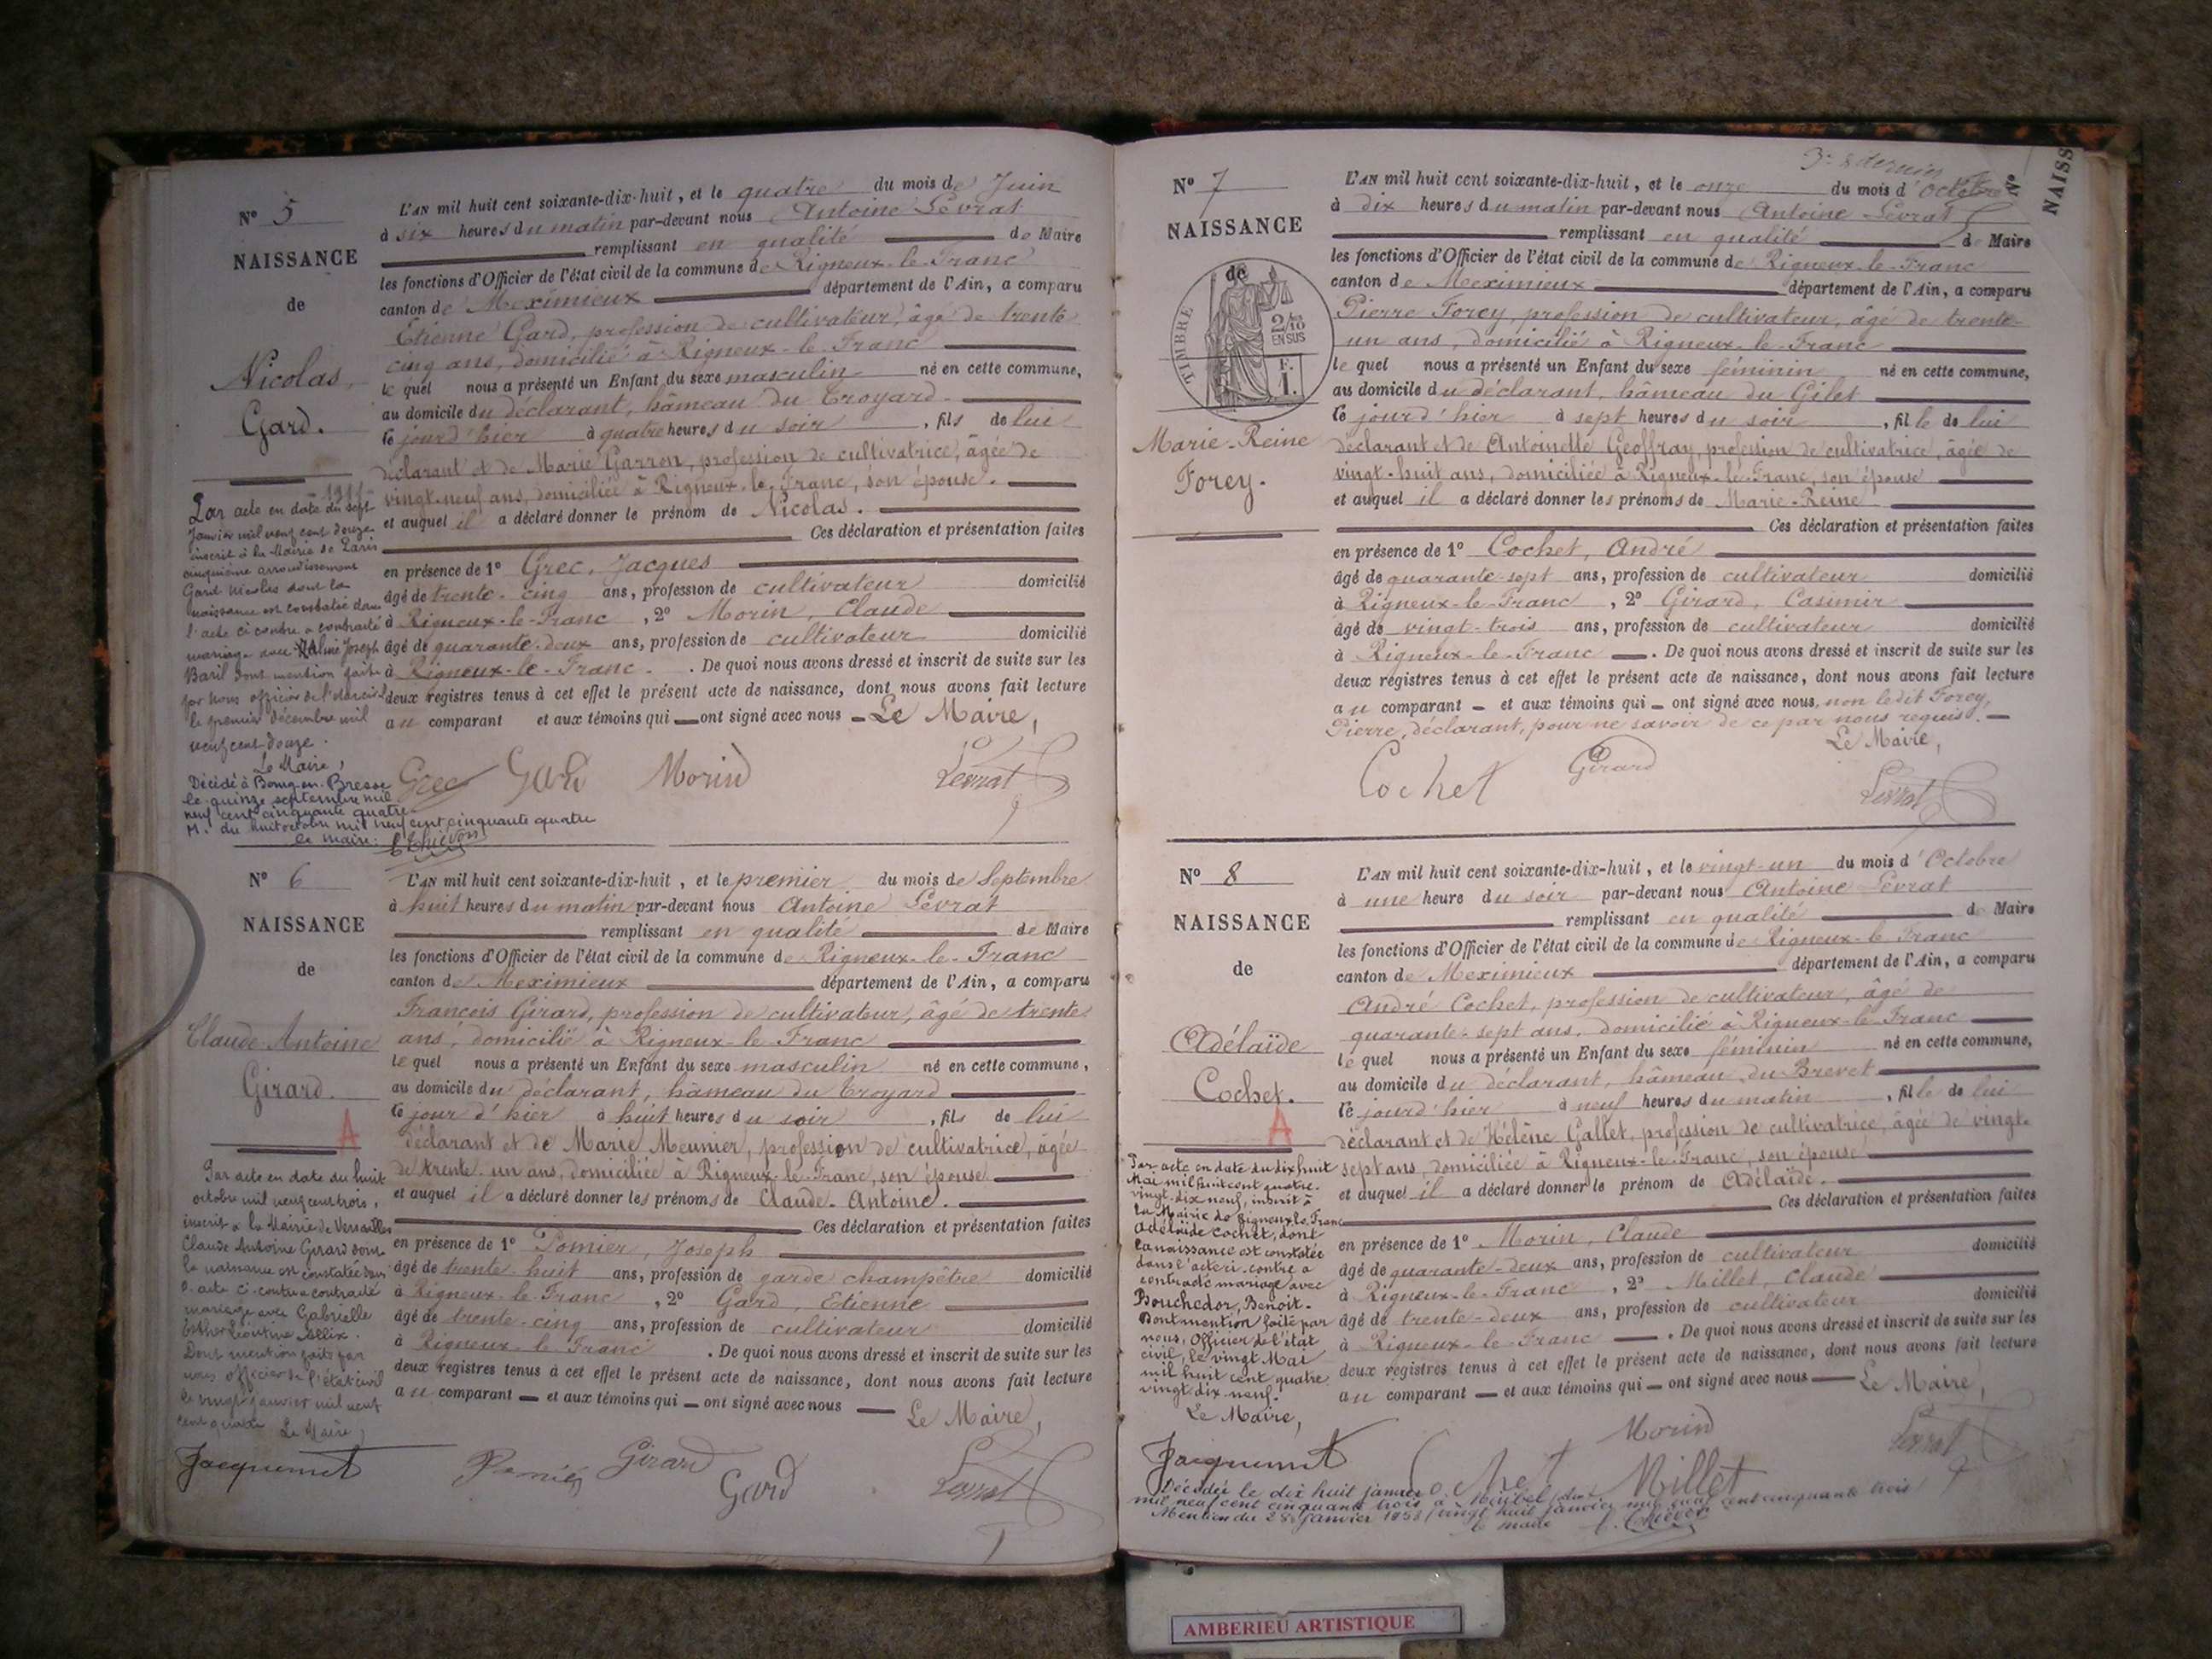 N° 5
NAISSANCE
de
Nicolas
Gard.
L'AN mil huit cent soixante-dix-huit, et le quatre du mois de Juin
à six heures du matin par-devant nous Antoine Levrat
remplissant en qualité de Maire
les fonctions d'Officier de l'état civil de la commune de Rigneux-le-Franc
canton de Meximieux département de l'Ain, a comparu
Etienne Gard, profession de cultivateur, âgé de trente
cinq ans, domicilié à Rigneux-le-Franc
le quel nous a présenté un Enfant du sexe masculin né en cette commune,
au domicile du déclarant, hâmeau du Croyard.
le jourd'hier à quatre heures du soir, fils de lui
déclarant et de Marie Garron, profession de cultivatrice, âgée de
vingt-neuf ans, domiciliée à Rigneux-le-Franc, son épouse.
et auquel il a déclaré donner le prénom de Nicolas.
Ces déclaration et présentation faites
en présence de 1° Grec, Jacques
âgé de trente-cinq ans, profession de cultivateur domicilié
à Rigneux-le-Franc, 2° Morin, Claude
âgé de quarante-deux ans, profession de cultivateur domicilié
à Rigneux-le-Franc. De quoi nous avons dressé et inscrit de suite sur les
deux registres tenus à cet effet le présent acte de naissance, dont nous avons fait lecture
au comparant et aux témoins qui — ont signé avec nous — Le Maire,
Grec Gard Morin Levrat
Par acte en date du sept
Janvier mil neuf cent douze
inscrit à la Mairie de Paris
cinquième arrondissement
Gard Nicolas dont la
naissance est constatée dans
l'acte ci contre a contracté
mariage avec Joseph
Baril dont mention faite
par nous officier de l'état civil
le premier décembre mil
neuf cent douze.
Le Maire,
Décédé à Bourg-en-Bresse
le quinze septembre mil
neuf cent cinquante quatre
M. du huit octobre mil neuf cent cinquante quatre
le maire:
N° 6
NAISSANCE
de
Claude Antoine
Girard.
A
L'AN mil huit cent soixante-dix-huit, et le premier du mois de Septembre
à huit heures du matin par-devant nous Antoine Levrat
remplissant en qualité de Maire
les fonctions d'Officier de l'état civil de la commune de Rigneux-le-Franc
canton de Meximieux département de l'Ain, a comparu
François Girard, profession de cultivateur, âgé de trente
ans, domicilié à Rigneux-le-Franc
le quel nous a présenté un Enfant du sexe masculin né en cette commune,
au domicile du déclarant, hâmeau du Croyard
le jour d'hier à huit heures du soir, fils de lui
déclarant et de Marie Meunier, profession de cultivatrice, âgée
de trente-un ans, domiciliée à Rigneux-le-Franc, son épouse.
et auquel il a déclaré donner les prénoms de Claude-Antoine.
Ces déclaration et présentation faites
en présence de 1° Pomier, Joseph
âgé de trente-huit ans, profession de garde champêtre domicilié
à Rigneux-le-Franc, 2° Gard, Etienne
âgé de trente-cinq ans, profession de cultivateur domicilié
à Rigneux-le-Franc. De quoi nous avons dressé et inscrit de suite sur les
deux registres tenus à cet effet le présent acte de naissance, dont nous avons fait lecture
au comparant — et aux témoins qui — ont signé avec nous — Le Maire,
Pomier Girard Gard Levrat
Par acte en date du huit
octobre mil neuf cent trois,
inscrit à la Mairie de Versailles
Claude Antoine Girard dont
la naissance est constatée dans
l'acte ci-contre a contracté
mariage avec Gabrielle
Esther Léontine Allix.
Dont mention faite par
nous officier de l'état civil
le vingt janvier mil neuf
cent quatre Le Maire,
Jacquemet
3e & dernier
N° 7
NAISSANCE
de
TIMBRE
2/10
EN SUS
F.
1.
Marie-Reine
Forey.
L'AN mil huit cent soixante-dix-huit, et le onze du mois d'Octobre
à dix heures du matin par-devant nous Antoine Levrat
remplissant en qualité de Maire
les fonctions d'Officier de l'état civil de la commune de Rigneux-le-Franc
canton de Meximieux département de l'Ain, a comparu
Pierre Forey, profession de cultivateur, âgé de trente-
un ans, domicilié à Rigneux-le-Franc
le quel nous a présenté un Enfant du sexe féminin né en cette commune,
au domicile du déclarant, hâmeau du Gilet
le jourd'hier à sept heures du soir, fille de lui
déclarant et de Antoinette Geoffray, profession de cultivatrice, âgée de
vingt-huit ans, domiciliée à Rigneux-le-Franc, son épouse
et auquel il a déclaré donner les prénoms de Marie-Reine
Ces déclaration et présentation faites
en présence de 1° Cochet, André
âgé de quarante-sept ans, profession de cultivateur domicilié
à Rigneux-le-Franc, 2° Girard, Casimir
âgé de vingt-trois ans, profession de cultivateur domicilié
à Rigneux-le-Franc —. De quoi nous avons dressé et inscrit de suite sur les
deux registres tenus à cet effet le présent acte de naissance, dont nous avons fait lecture
au comparant — et aux témoins qui — ont signé avec nous, non ledit Forey,
Pierre, déclarant, pour ne savoir de ce par nous requis. —
Le Maire,
Cochet Girard Levrat
N° 8
NAISSANCE
de
Adélaïde
Cochet.
A
L'AN mil huit cent soixante-dix-huit, et le vingt-un du mois d'Octobre
à une heure du soir par-devant nous Antoine Levrat
remplissant en qualité de Maire
les fonctions d'Officier de l'état civil de la commune de Rigneux-le-Franc
canton de Meximieux département de l'Ain, a comparu
André Cochet, profession de cultivateur, âgé de
quarante-sept ans, domicilié à Rigneux-le-Franc
le quel nous a présenté un Enfant du sexe féminin né en cette commune,
au domicile du déclarant, hâmeau du Brevet
le jourd'hier à neuf heures du matin, fille de lui
déclarant et de Hélène Gallet, profession de cultivatrice, âgée de vingt-
sept ans, domiciliée à Rigneux-le-Franc, son épouse
et auquel il a déclaré donner le prénom de Adélaïde.
Ces déclaration et présentation faites
en présence de 1° Morin, Claude
âgé de quarante-deux ans, profession de cultivateur domicilié
à Rigneux-le-Franc, 2° Millet, Claude
âgé de trente-deux ans, profession de cultivateur domicilié
à Rigneux-le-Franc —. De quoi nous avons dressé et inscrit de suite sur les
deux registres tenus à cet effet le présent acte de naissance, dont nous avons fait lecture
au comparant — et aux témoins qui — ont signé avec nous — Le Maire,
Morin
Cochet Millet Levrat
Par acte en date du dix huit
Mai mil huit cent quatre-
vingt-dix neuf, inscrit à
la Mairie de Rigneux le Franc
Adélaïde Cochet, dont
la naissance est constatée
dans l'acte ci-contre a
contracté mariage avec
Bouchedor, Benoit.
Dont mention faite par
nous, Officier de l'état
civil, le vingt Mai
mil huit cent quatre
vingt dix neuf.
Le Maire,
Jacquemet
Décédée le dix huit janvier
mil neuf cent cinquante trois à Miribel (Ain) mil neuf cent cinquante trois
Mention du 28 janvier 1953 (vingt huit janvier
le maire
N°
NAISS
AMBERIEU ARTISTIQUE